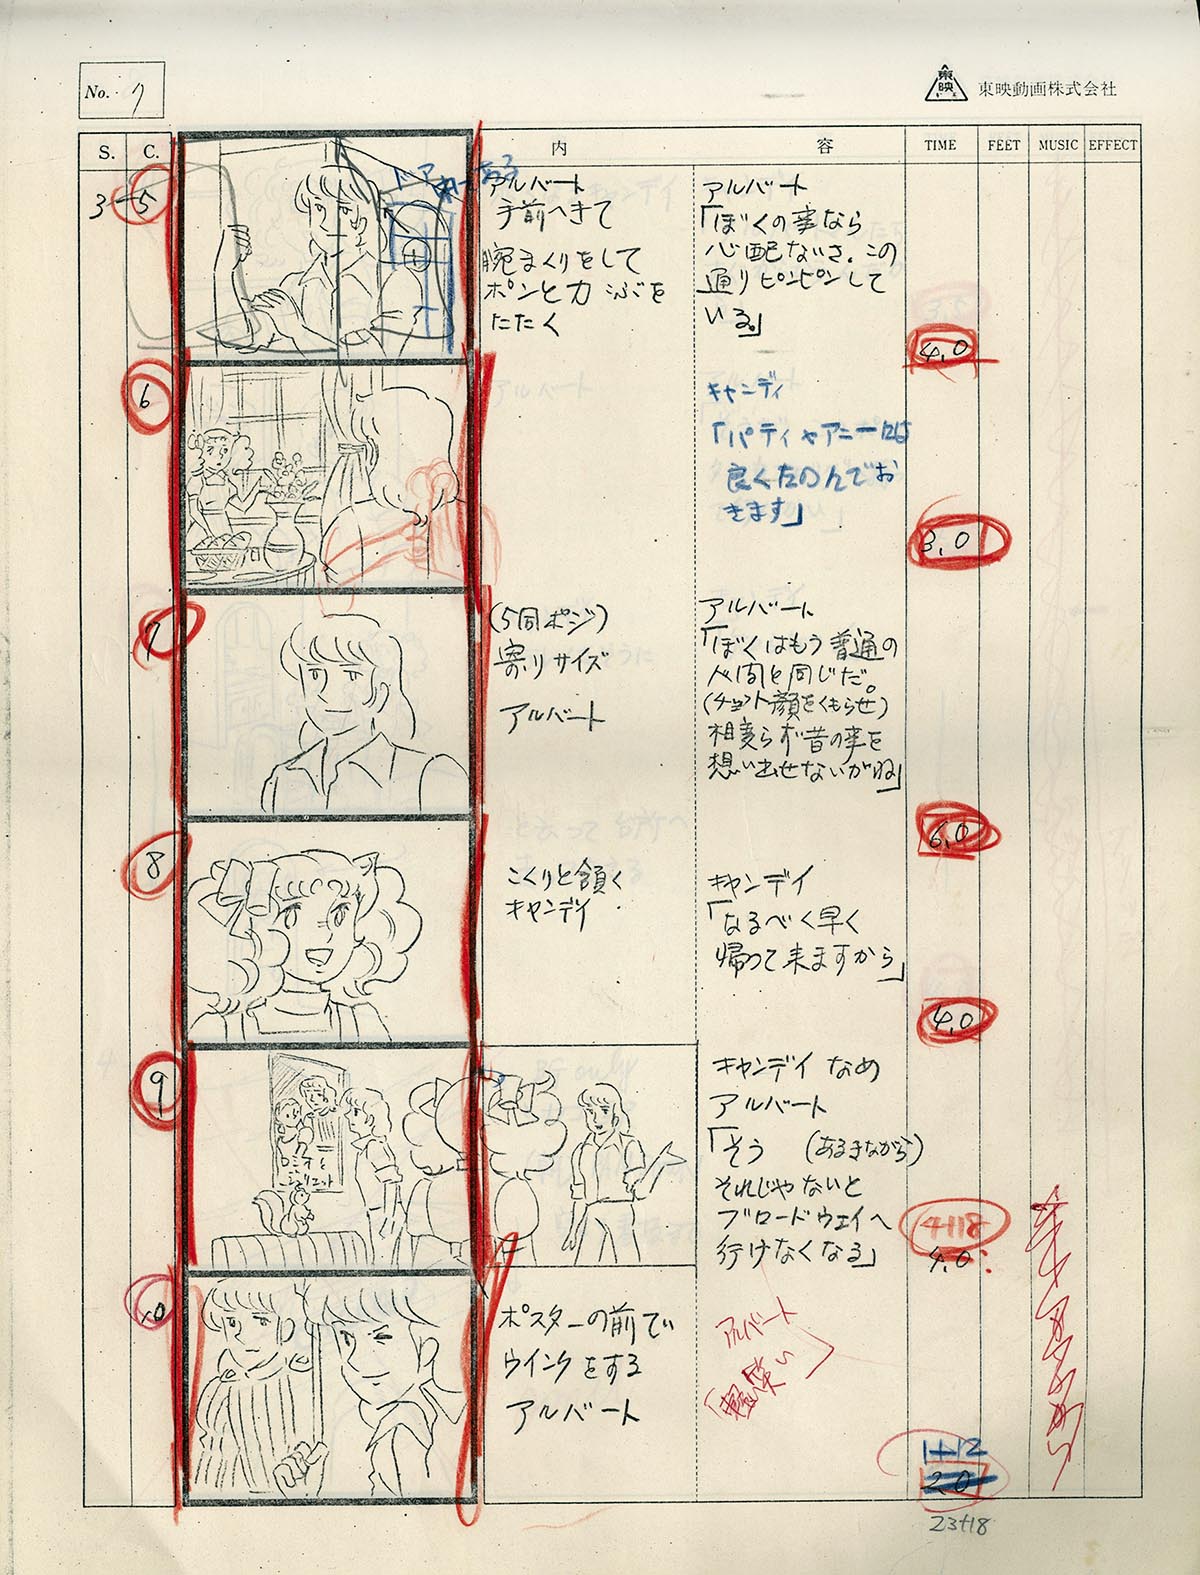 No. 7
東映
東映動画株式会社
S. C. 内 容 TIME FEET MUSIC EFFECT
3 5
ドア
アルバート
手前へきて
腕まくりをして
ポンと力こぶを
たたく
アルバート
「ぼくの事なら
心配ないさ。この
通りピンピンして
いる。」
4.0
6
キャンディ
「パティやアニーには
良くたのんでお
きます」
3.0
7
(5同ポジ)
寄りサイズ
アルバート
アルバート
「ぼくはもう普通の
人間と同じだ。
(チョット顔をくもらせ)
相変らず昔の事を
想い出せないがね」
6.0
8
こくりと頷く
キャンデイ
キャンデイ
「なるべく早く
帰って来ますから」
4.0
9
ロミオと
ジュリエット
キャンデイなめ
アルバート
「そう (あるきながら)
それじゃないと
ブロードウェイへ
行けなくなる」
4+18
4.0
10
ポスターの前で
ウインクをする
アルバート
アルバート
「軽笑い」
1+12
2.0
23+18